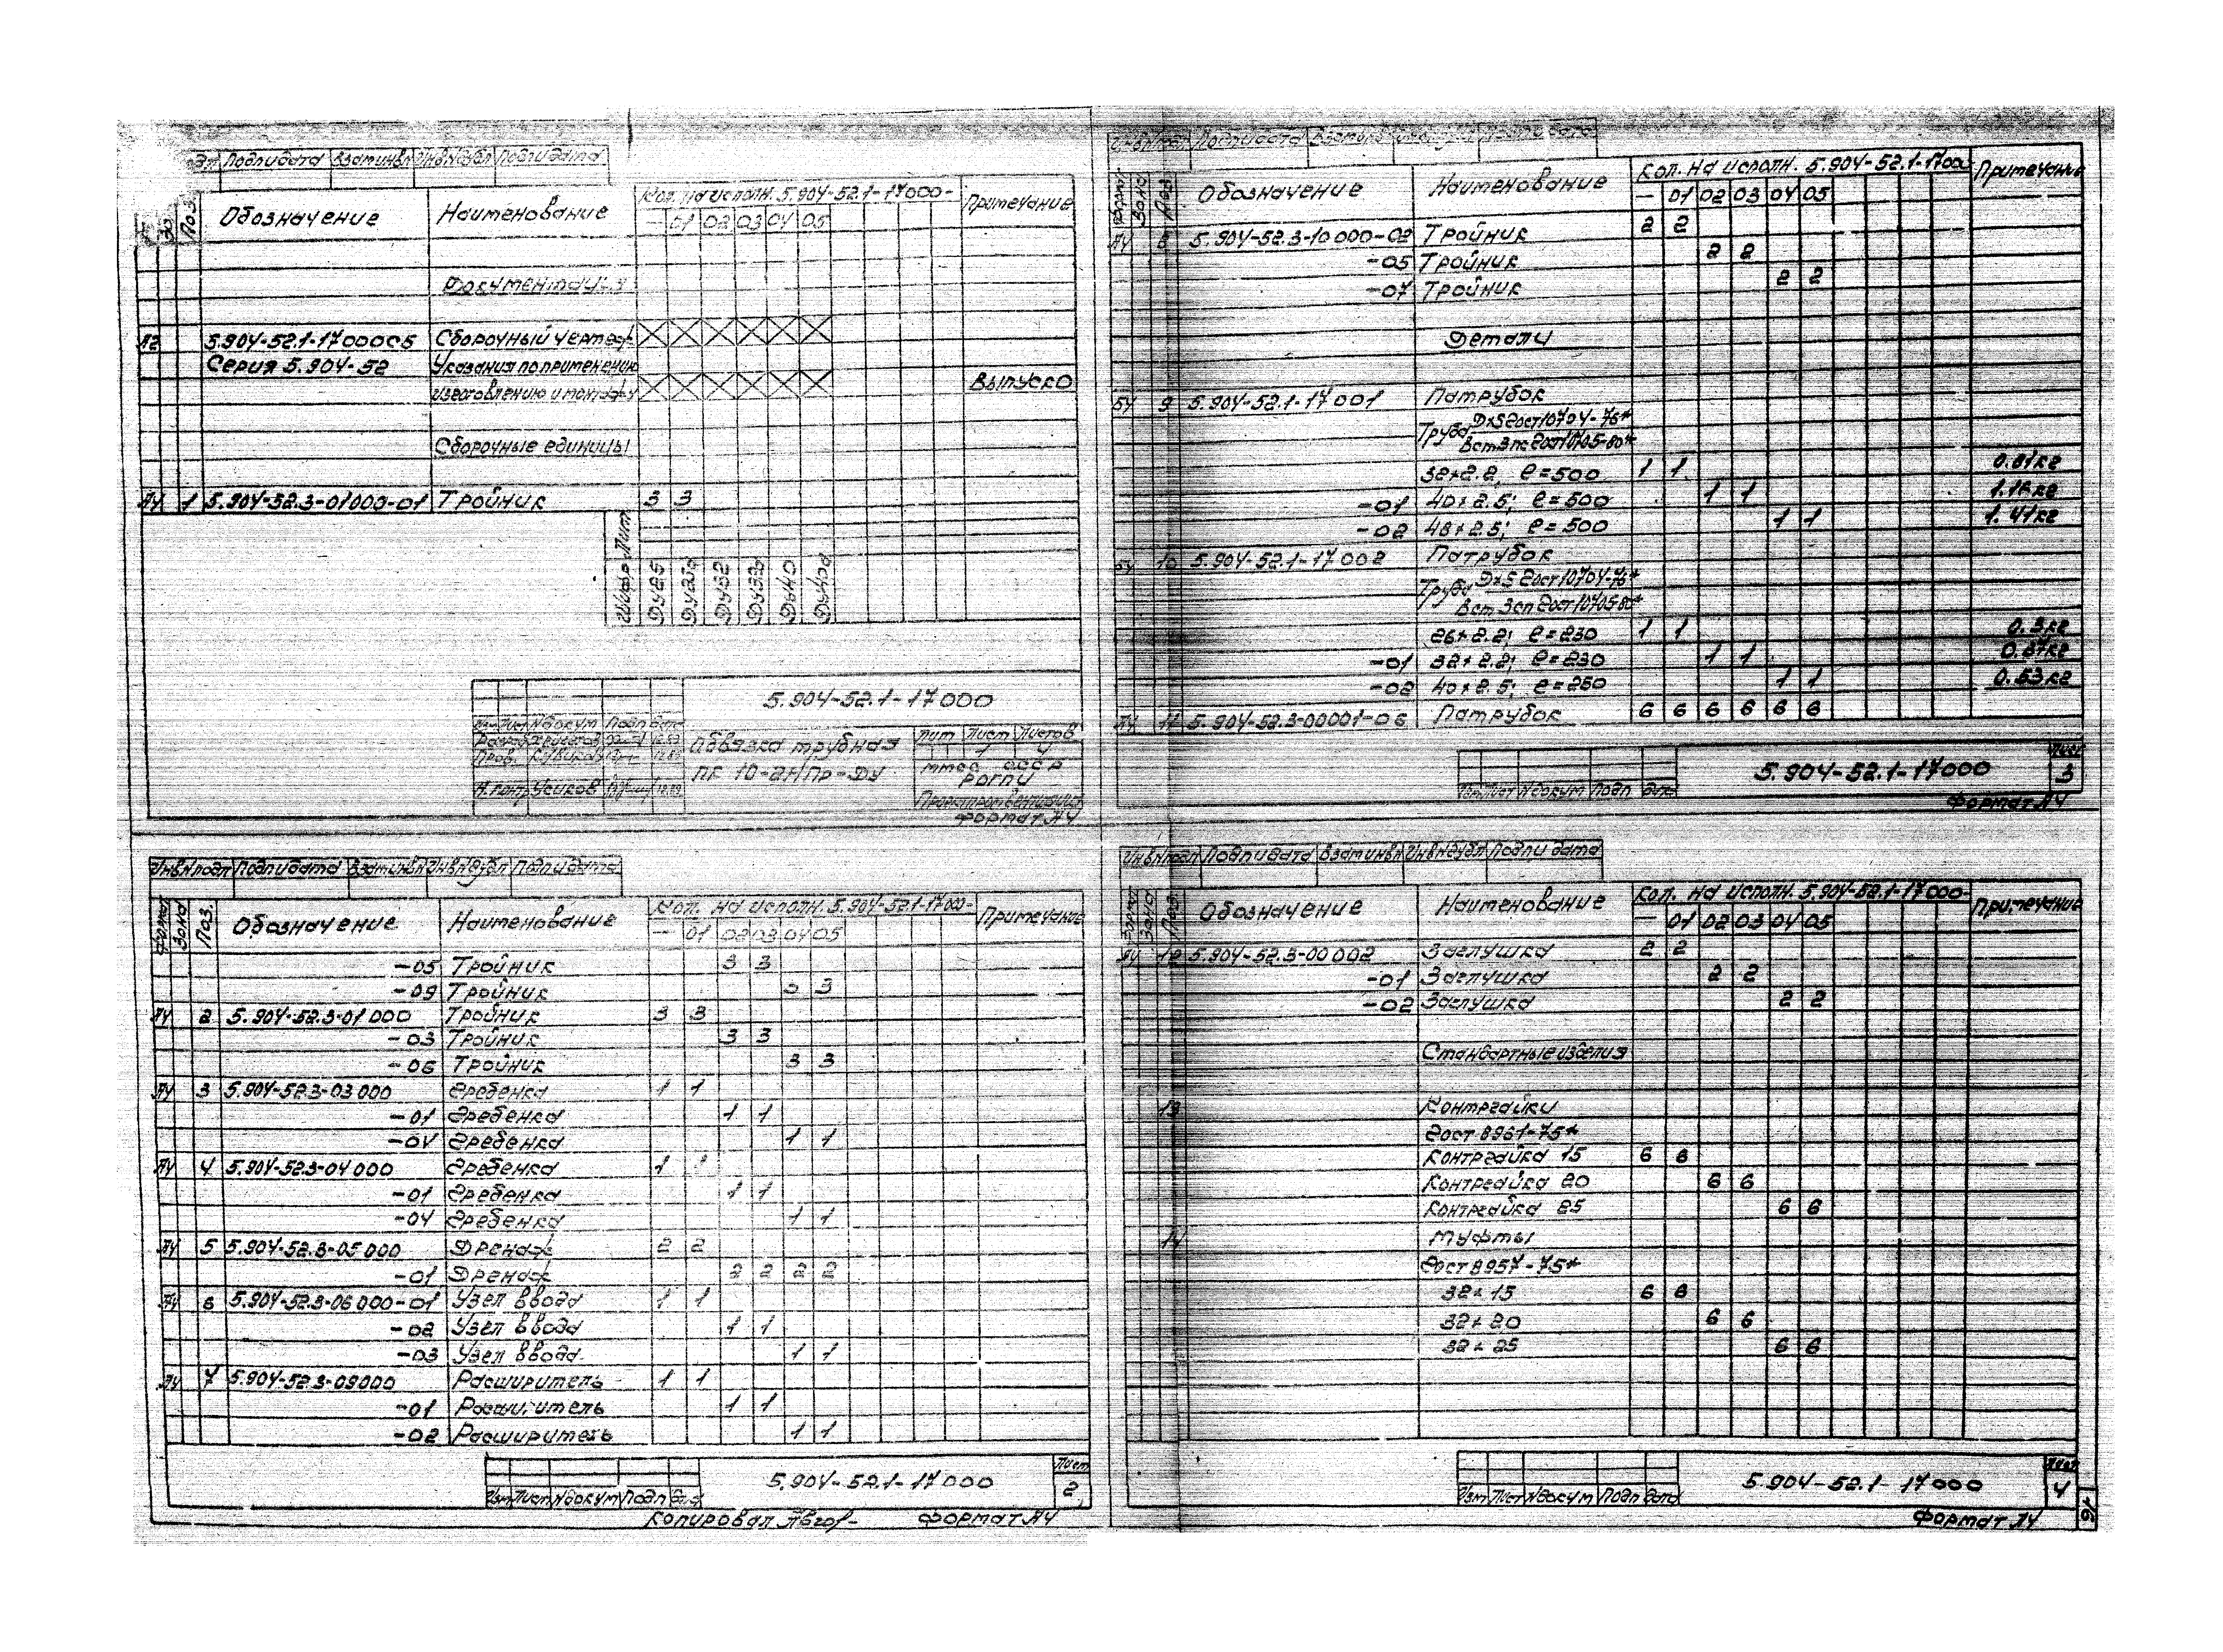 Подп и дата Взам инв Инв N дубл Подп и дата
Поз Обозначение Наименование Кол. на исполн. 5.904-52.1-17000- Примечание
— 01 02 03 04 05
Документация
А2 5.904-52.1-17000СБ Сборочный чертеж
Серия 5.904-52 Указания по применению
изготовлению и монтажу Выпуск 0
Сборочные единицы
А4 1 5.904-52.3-01000-01 Тройник 3 3
Шифр Лит
Ду25
Ду32
Ду40
5.904-52.1-17000
Изм Лист N докум Подп Дата
Обвязка трубная
ПК 10-2НПр-Ду
Лит Лист Листов
1 4
ММСС СССР
Н.контр Усиков
Формат А4
Инв N подл Подп и дата Взам инв N Инв N дубл Подп и дата
Формат Зона Поз. Обозначение Наименование Кол. на исполн. 5.904-52.1-17000- Примечание
— 01 02 03 04 05
-05 Тройник 3 3
-09 Тройник 3 3
А4 2 5.904-52.3-01000 Тройник 3 3
-03 Тройник 3 3
-06 Тройник 3 3
А4 3 5.904-52.3-03000 Гребенка 1 1
-01 Гребенка 1 1
-04 Гребенка 1 1
А4 4 5.904-52.3-04000 Гребенка 1 1
-01 Гребенка 1 1
-04 Гребенка 1 1
А4 5 5.904-52.3-05000 Дренаж 2 2
-01 Дренаж 2 2 2 2
А4 6 5.904-52.3-06000-01 Узел ввода 1 1
-02 Узел ввода 1 1
-03 Узел ввода 1 1
А4 7 5.904-52.3-09000 Расширитель 1 1
-01 Расширитель 1 1
-02 Расширитель 1 1
Изм Лист N докум Подп Дата
5.904-52.1-17000
Лист
2
Копировал Формат А4
Формат Зона Поз. Обозначение Наименование Кол. на исполн. 5.904-52.1-17000 Примечание
— 01 02 03 04 05
А4 8 5.904-52.3-10000-02 Тройник 2 2
-05 Тройник 2 2
-07 Тройник 2 2
Детали
БЧ 9 5.904-52.1-17001 Патрубок
Труба Д×S Гост 10704-76*
Вст3пс Гост 10705-80*
32×2.2; ℓ=500 1 1 0.81кг
-01 40×2.5; ℓ=500 1 1 1.16кг
-02 48×2.5; ℓ=500 1 1 1.41кг
БЧ 10 5.904-52.1-17002 Патрубок
Труба Д×S Гост 10704-76*
Вст3сп Гост 10705-80*
26×2.2; ℓ=230 1 1 0.3кг
-01 32×2.2; ℓ=230 1 1 0.37кг
-02 40×2.5; ℓ=260 1 1 0.53кг
А4 11 5.904-52.3-00001-06 Патрубок 6 6 6 6 6 6
Изм Лист N докум Подп Дата
5.904-52.1-17000
Лист
3
Формат А4
Инв N подл Подп и дата Взам инв N Инв N дубл Подп и дата
Формат Зона Поз. Обозначение Наименование Кол. на исполн. 5.904-52.1-17000- Примечание
— 01 02 03 04 05
А4 12 5.904-52.3-00002 Заглушка 2 2
-01 Заглушка 2 2
-02 Заглушка 2 2
Стандартные изделия
13 Контргайки
Гост 8961-75*
Контргайка 15 6 6
Контргайка 20 6 6
Контргайка 25 6 6
14 Муфты
Гост 8957-75*
32×15 6 6
32×20 6 6
32×25 6 6
Изм Лист N докум Подп Дата
5.904-52.1-17000
Лист
4
Формат А4